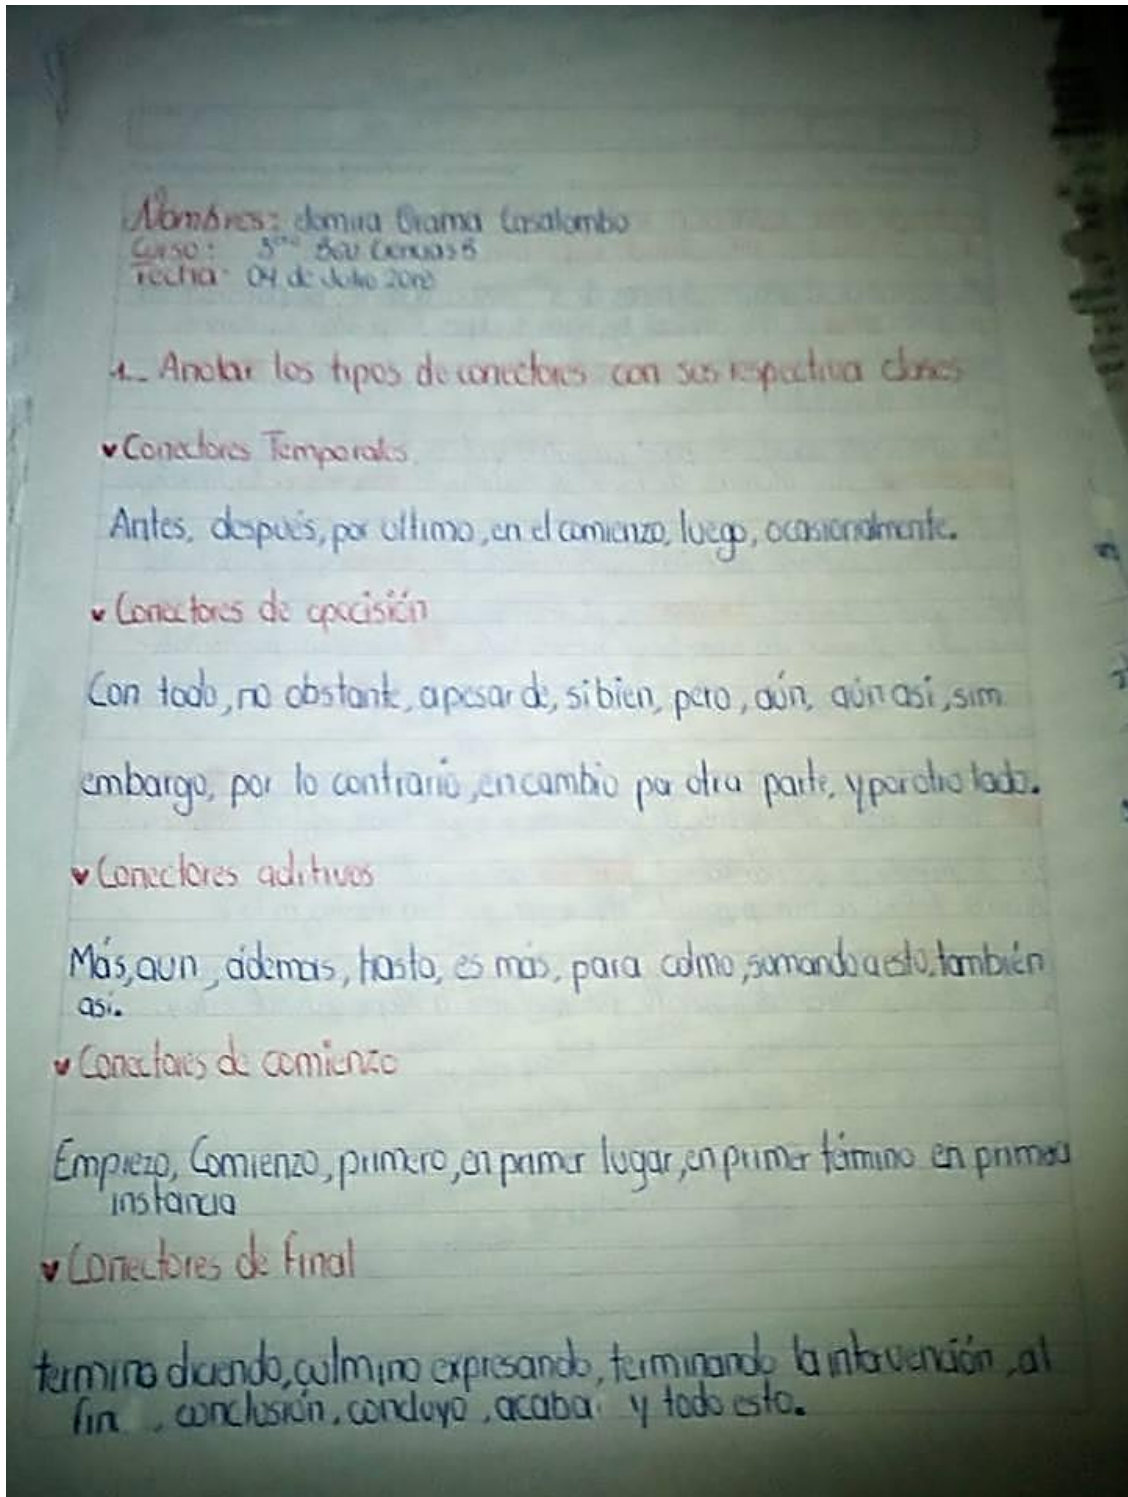 Nombres: Grama
Curso: 3ero BGU Ciencias
Fecha: 04 de Julio
1.- Anotar los tipos de conectores con sus respectiva clases
Conectores Temporales.
Antes, después, por ultimo, en el comienzo, luego, ocasionalmente.
Conectores de
Con todo, no obstante, apesar de, si bien, pero, aún, aún asi, sim
embargo, por lo contrario, en cambio por otra parte, y por otro lado.
Conectores aditivos
Más, aun, ádemas, hasta, es más, para colmo, sumando a esto, también
asi.
Conectores de comienzo
Empiezo, Comienzo, primero, en primer lugar, en primer término en primera
instancia
Conectores de final
termino diciendo, culmino expresando, terminando la intervención, al
fin, conclusión, concluyo, acaba y todo esto.